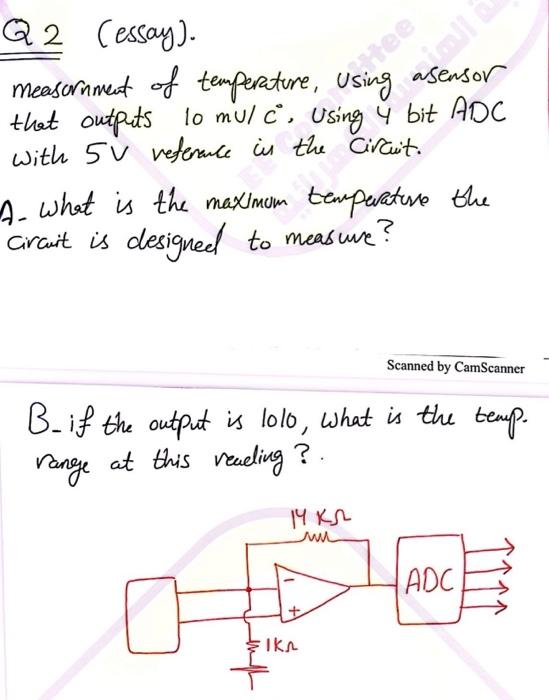 Q2 (essay).
measurnment of temperature, using asensor
that outputs 10 mv/c°, Using 4 bit ADC
with 5V reference in the Circuit.
A- what is the maximum temperature the
Circuit is designed to measure?
Scanned by CamScanner
B- if the output is 1010, what is the temp.
range at this reading?.
14 KΩ
-
+
ADC
1KΩ